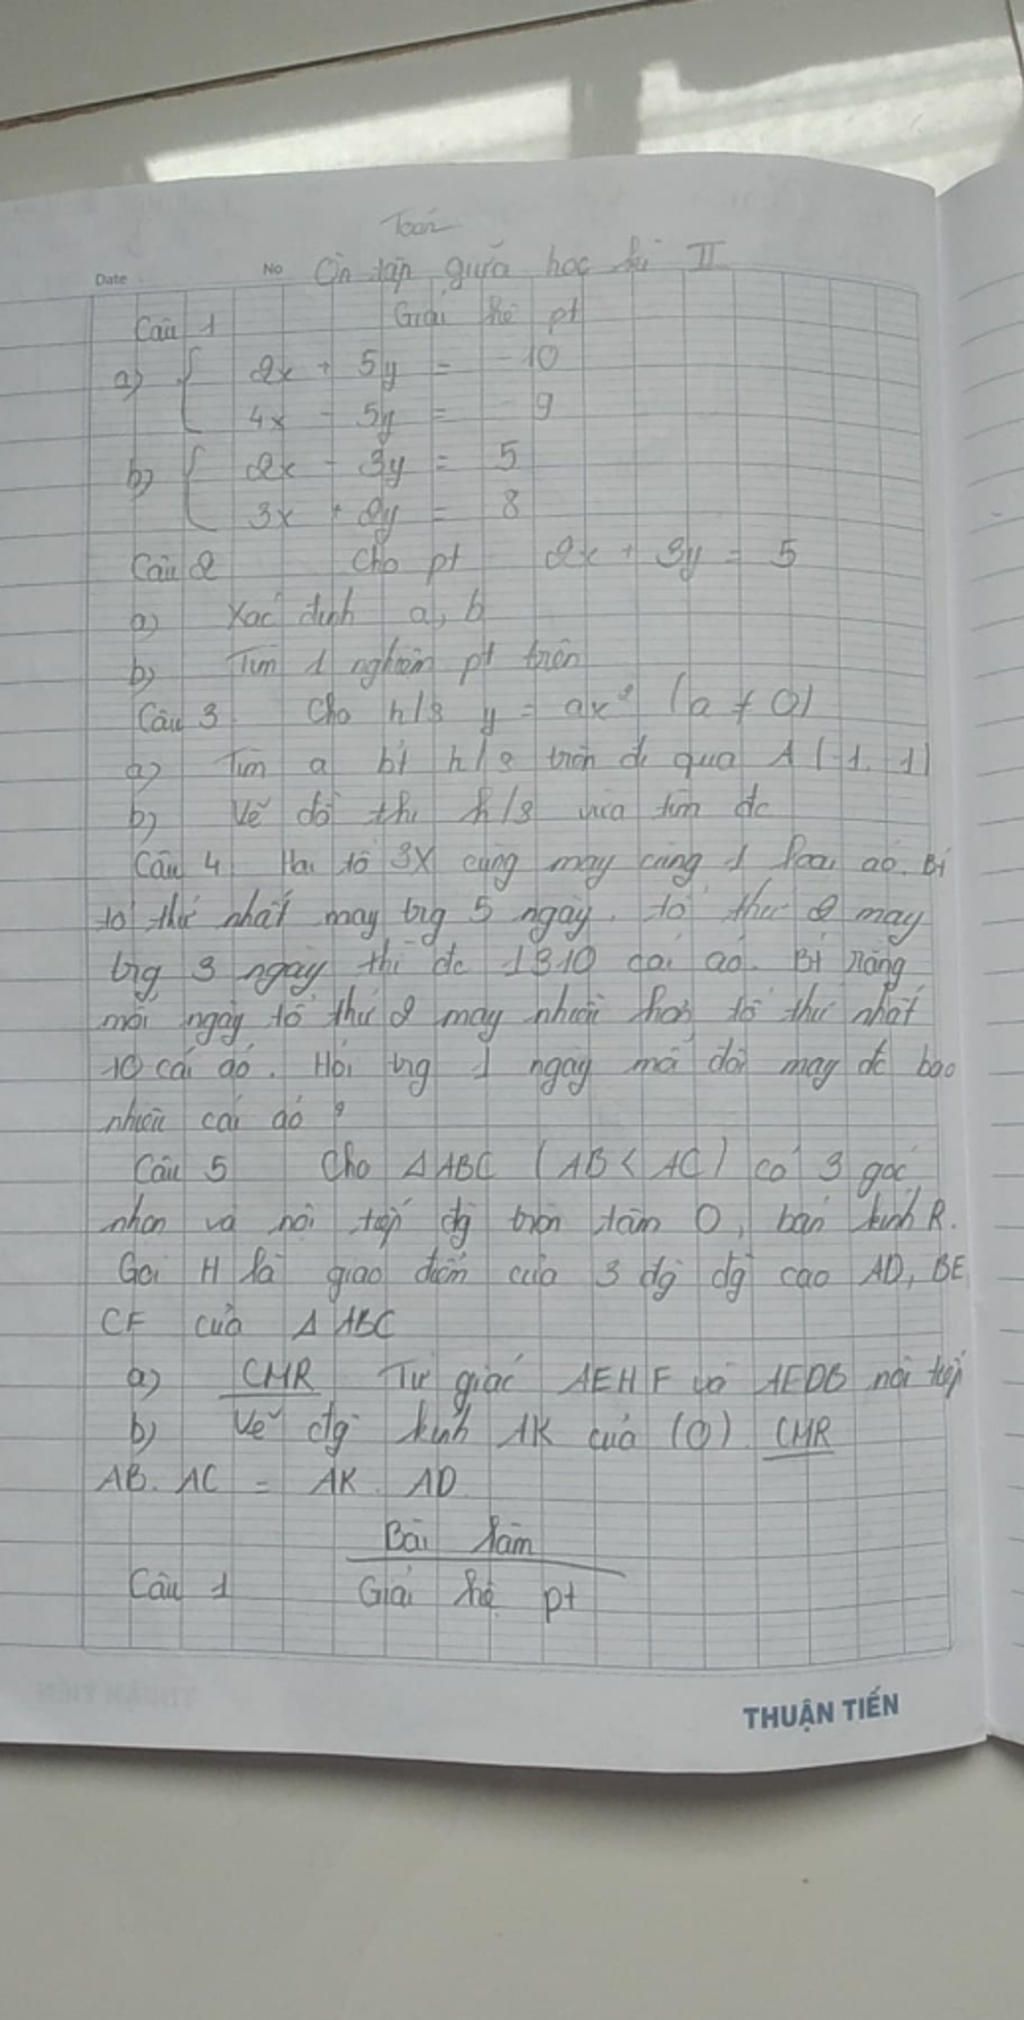 Toán
Date
No Ôn tập giữa học kì II
Câu 1 Giải hệ pt
a) { 2x + 5y = -10
4x - 5y = -9
b) { 2x - 3y = 5
3x + 2y = 8
Câu 2 Cho pt 2x + 3y = 5
a) Xác định a, b
b) Tìm 1 nghiệm pt trên
Câu 3 Cho h/s y = ax² (a ≠ 0)
a) Tìm a bt h/s trên đi qua A(-1, 1)
b) Vẽ đồ thị h/s vừa tìm đc
Câu 4 Hai tổ SX cùng may cùng 1 loại áo. Bt
tổ thứ nhất may trg 5 ngày, tổ thứ 2 may
trg 3 ngày thì đc 1310 cái áo. Bt rằng
mỗi ngày tổ thứ 2 may nhiều hơn tổ thứ nhất
10 cái áo. Hỏi trg 1 ngày mỗi đội may đc bao
nhiêu cái áo ?
Câu 5 Cho Δ ABC (AB < AC) có 3 góc
nhọn và nội tiếp đg tròn tâm O, bán kính R.
Gọi H là giao điểm của 3 đg đg cao AD, BE
CF của Δ ABC
a) CMR Tứ giác AEHF và AEDB nội tiếp
b) Vẽ đg kính AK của (O). CMR
AB. AC = AK. AD
Bài làm
Câu 1 Giải hệ pt
THUẬN TIẾN